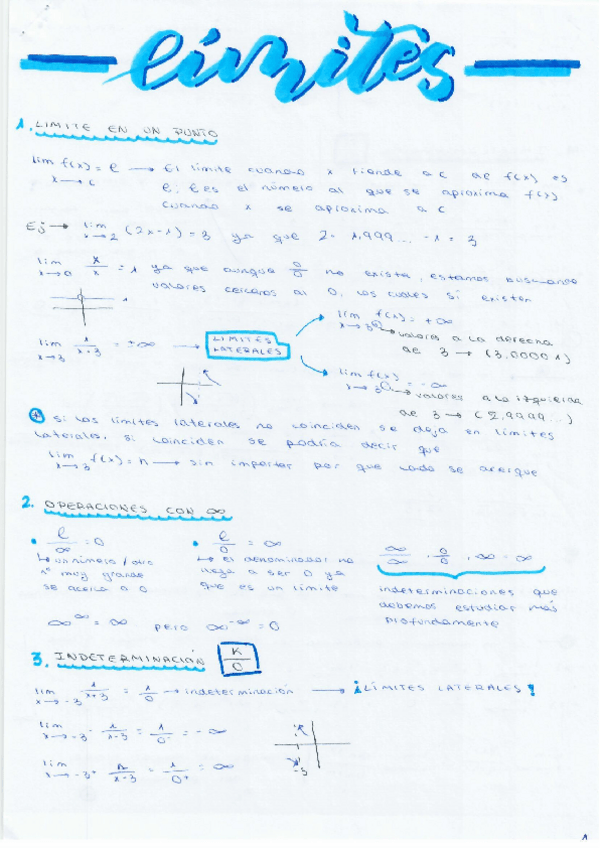 límites
1. LIMITE EN UN PUNTO
lim f(x) = l → El límite cuando x tiende a c de f(x) es
x → c l; l es el número al que se aproxima f(x)
cuando x se aproxima a c
Ej → lim (2x-1) = 3 ya que 2· 1,999... -1 = 3
x → 2
lim x/x = 1 ya que aunque 0/0 no exista, estamos buscando
x → 0 valores cercanos al 0, los cuales sí existen
1
lim 1/x+3 = ±∞ → LIMITES LATERALES
x → 3
lim f(x) = +∞
x → 3 → valores a la derecha
de 3 → (3,00001)
lim f(x) = -∞
x → 3 → valores a la izquierda
de 3 → (2,9999...)
si los límites laterales no coinciden se deja en límites
laterales, si coinciden se podría decir que
lim f(x) = n → sin importar por que lado se acerque
x → 3
2. OPERACIONES CON ∞
• l/∞ = 0 • l/0 = ∞ ∞/∞ · 0/0 , ∞ - ∞
muy grande
se acerca a 0
↳ el denominador no
llega a ser 0 ya
que es un límite
indeterminaciones que
debemos estudiar más
profundamente
∞^∞ = ∞ pero ∞^-∞ = 0
3. INDETERMINACIÓN K/0
lim 1/x+3 = 1/0 → indeterminación → ¡LÍMITES LATERALES!
x → -3
lim 1/x-3 = 1/0⁻ = -∞
x → -3⁻
lim 1/x-3 = 1/0⁺ = ∞
x → -3⁺
-3
1